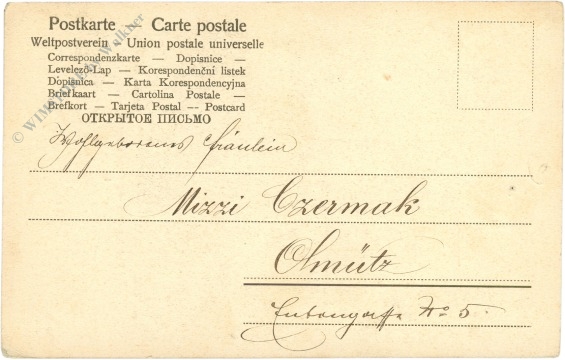 Postkarte — Carte postale
Weltpostverein - Union postale universelle
Correspondenzkarte — Dopisnice —
Levelező-Lap — Korespondenční listek
Dopisnica — Karta Korespondencyjna
Briefkaart — Cartolina Postale —
Brefkort — Tarjeta Postal — Postcard
ОТКРЫТОЕ ПИСЬМО
Wohlgeborenes Fräulein
Mizzi Czermak
Olmütz
No 5.